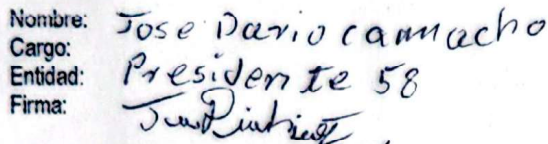 Nombre: Jose Dario camacho
Cargo:
Entidad: Presidente 58
Firma: